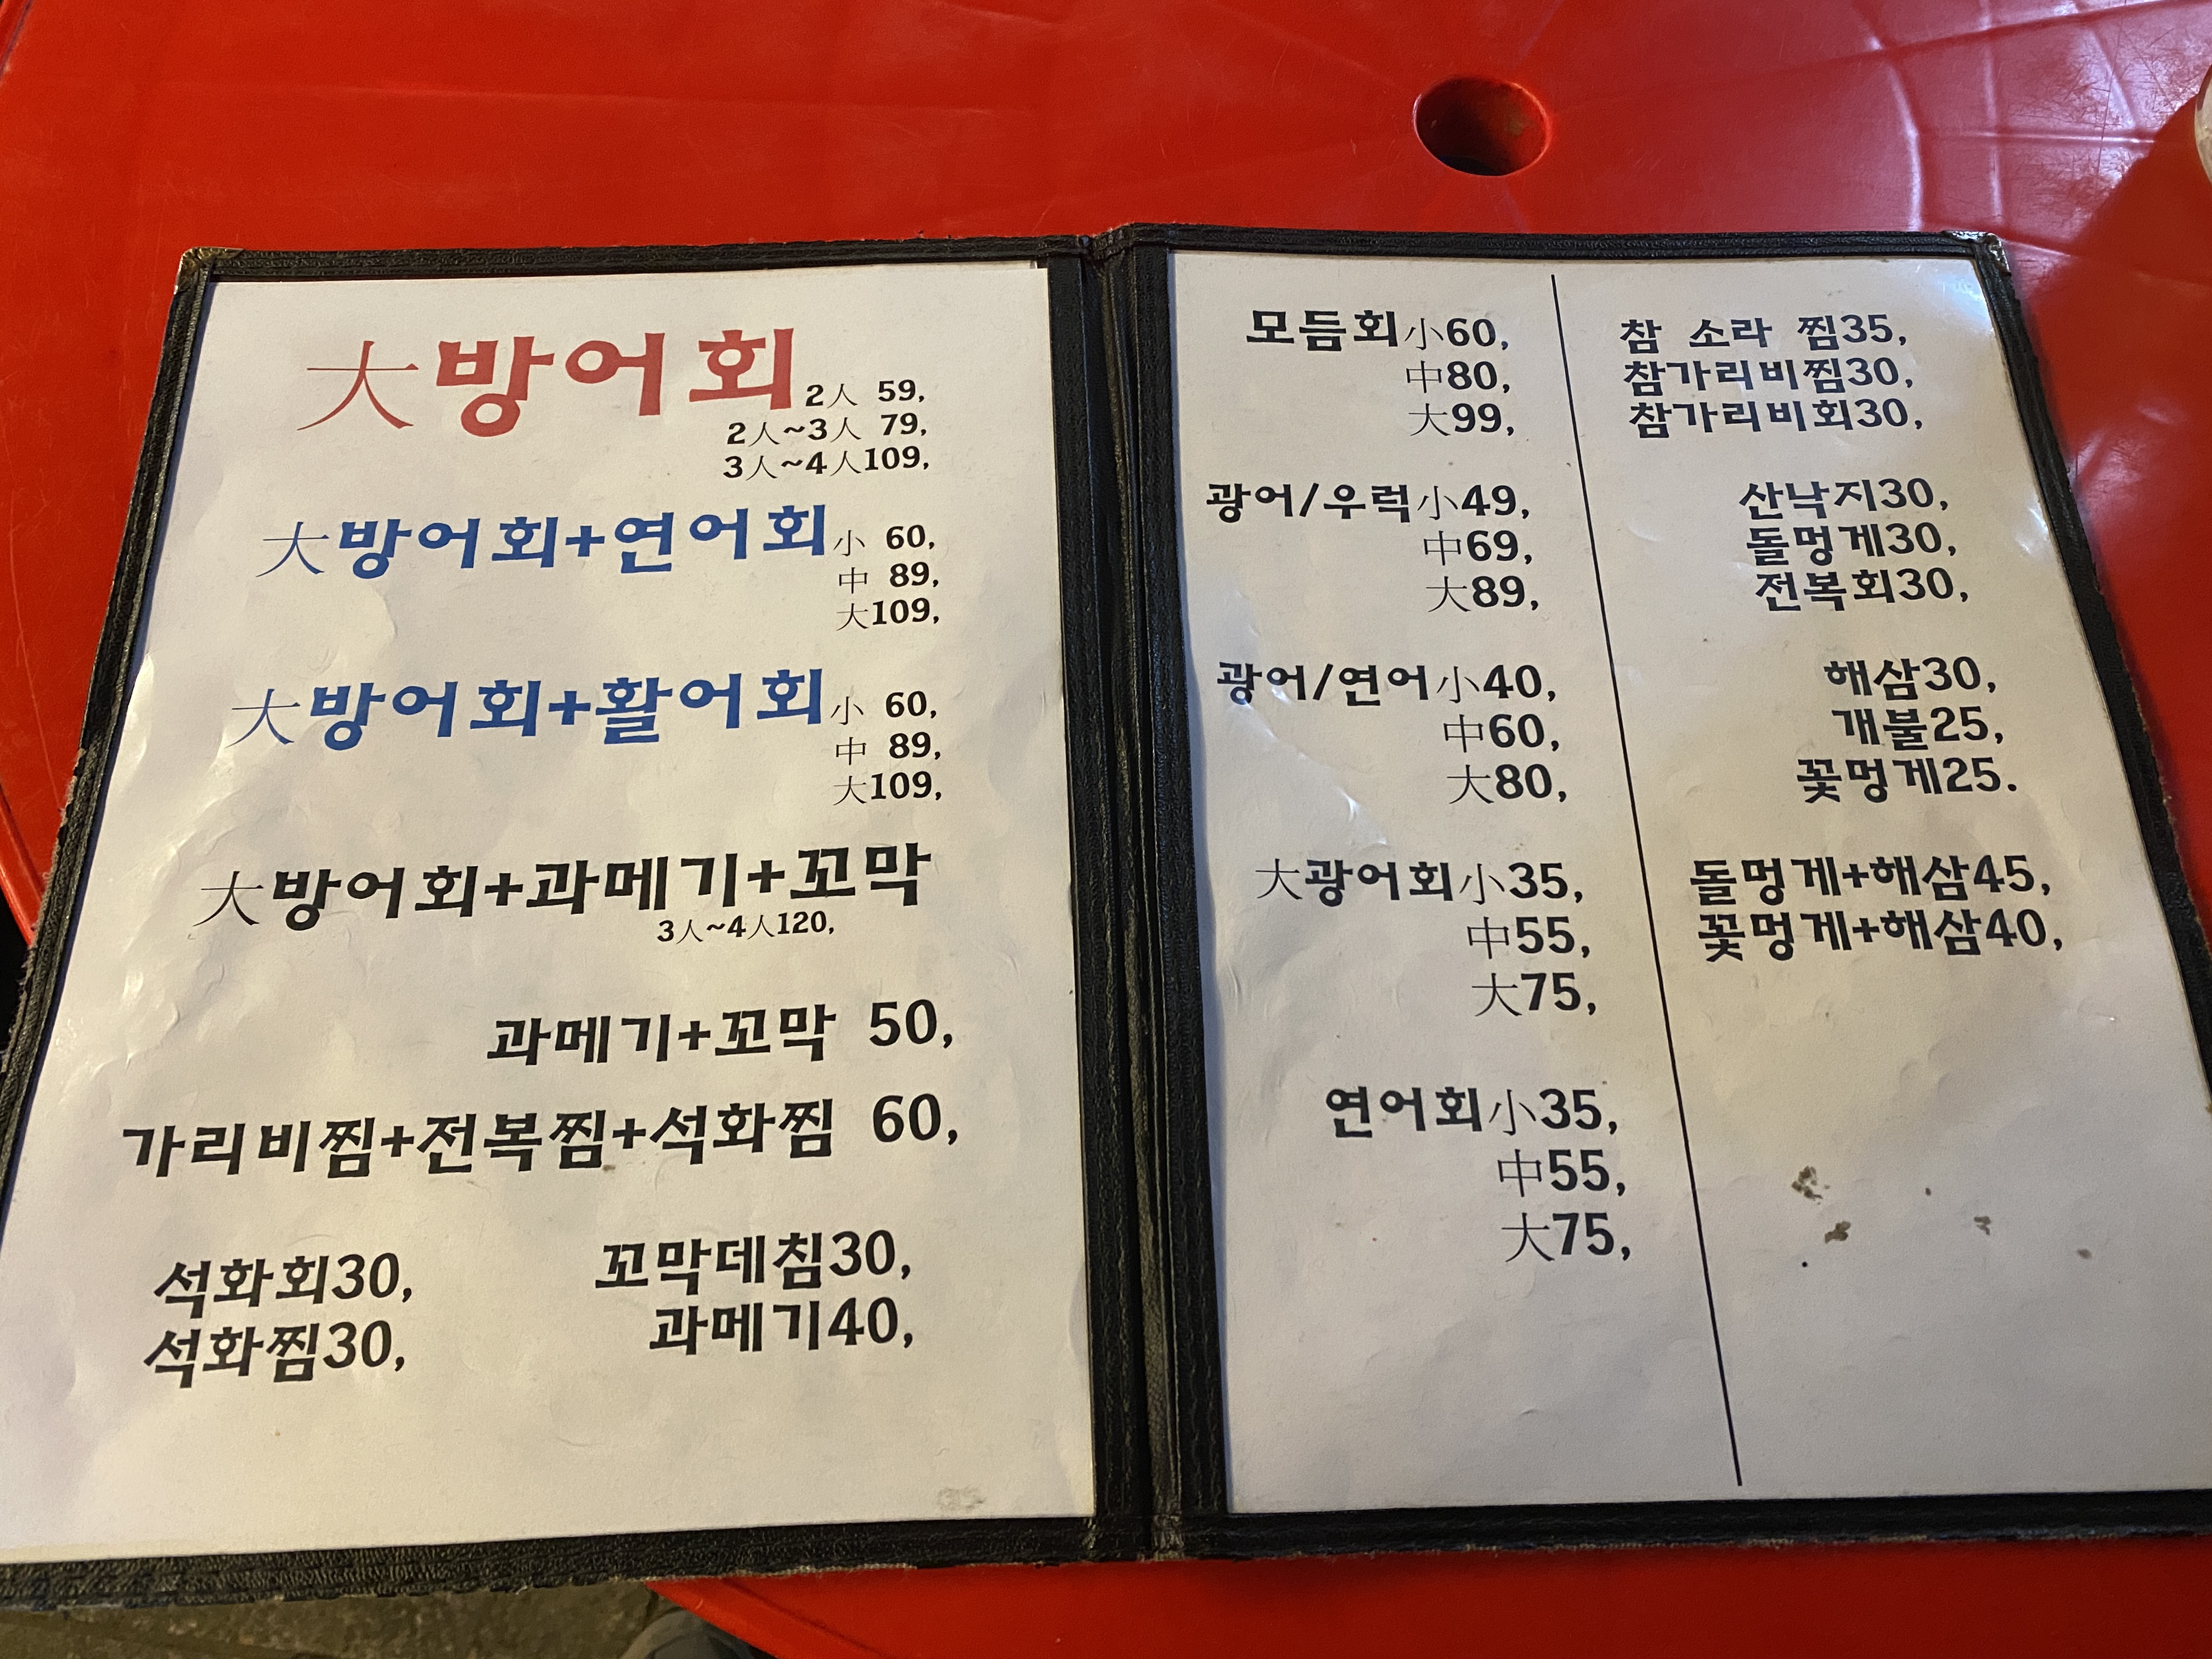 大방어회 2人 59,
2人~3人 79,
3人~4人109,
大방어회+연어회小 60,
中 89,
大109,
大방어회+활어회小 60,
中 89,
大109,
大방어회+과메기+꼬막
3人~4人120,
과메기+꼬막 50,
가리비찜+전복찜+석화찜 60,
석화회30,
석화찜30,
꼬막데침30,
과메기40,
모듬회小60,
中80,
大99,
광어/우럭小49,
中69,
大89,
광어/연어小40,
中60,
大80,
大광어회小35,
中55,
大75,
연어회小35,
中55,
大75,
참 소라 찜35,
참가리비찜30,
참가리비회30,
산낙지30,
돌멍게30,
전복회30,
해삼30,
개불25,
꽃멍게25.
돌멍게+해삼45,
꽃멍게+해삼40,